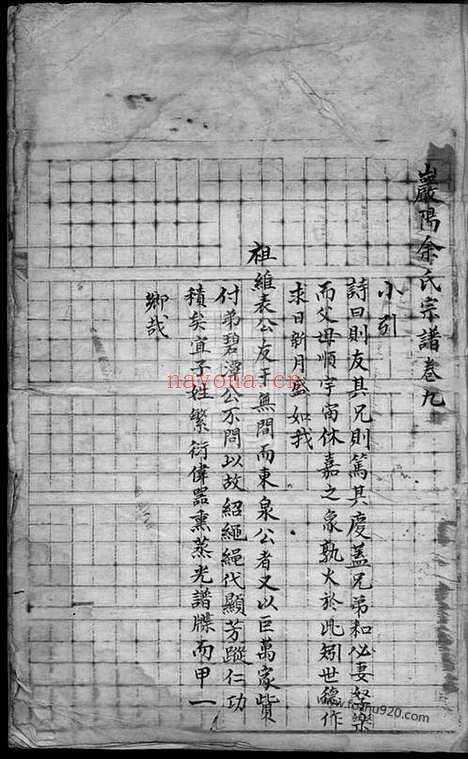 巖陽余氏宗譜卷九
小引
詩曰則友其兄則篤其慶蓋兄弟和必妻孥樂
而父母順宇宙休嘉之象孰大於此矧世德作
求日新月盛如我
祖維表公友于無間而東泉公者又以巨萬家貲
付弟碧潭公不問以故紹繩繩代顯芳蹤仁功
積矣宜子姓繁衍偉器熏蒸光譜牒而甲一
鄉哉
nayona.cn
920.com